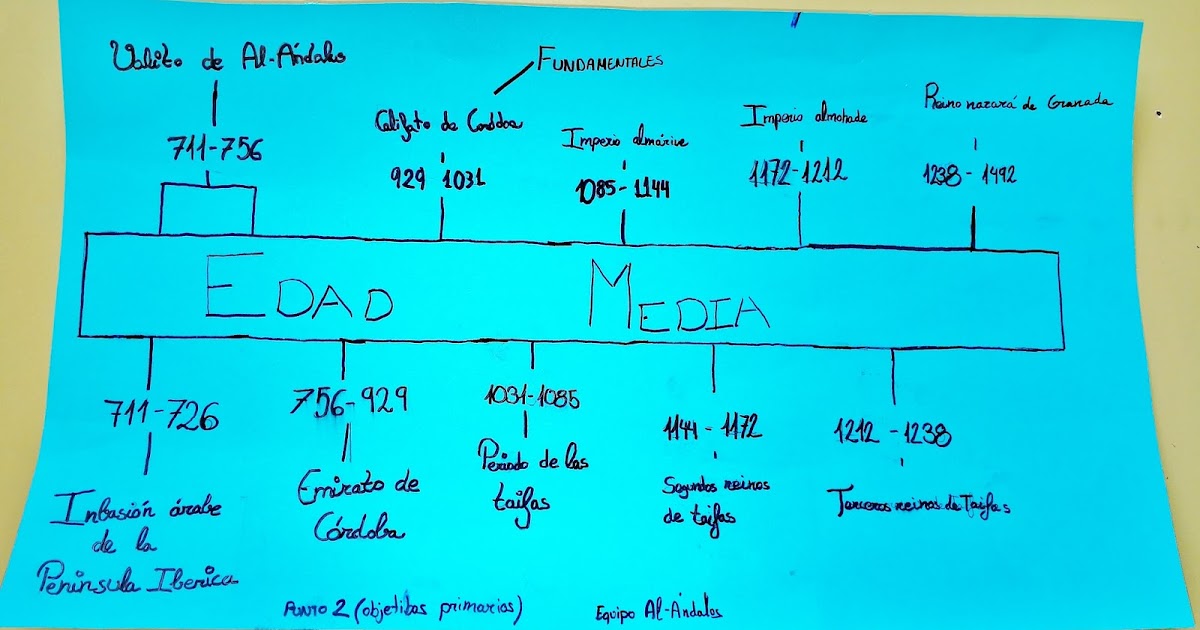 Valito de Al-Ándalus
711-756
FUNDAMENTALES
Califato de Cordoba
929 1031
Imperio almórive
1085-1144
Imperio almohade
1172-1212
Reino nazará de Granada
1238-1492
EDAD MEDIA
711-726
Inbasión árabe
de la
Península Iberica
756-929
Emirato de
Córdoba
1031-1085
Periodo de las
taifas
1144-1172
Segundos reinos
de taifas
1212-1238
Terceros reinos de Taifas
PUNTO 2 (objetibos primarios)
Equipo Al-Ándalus